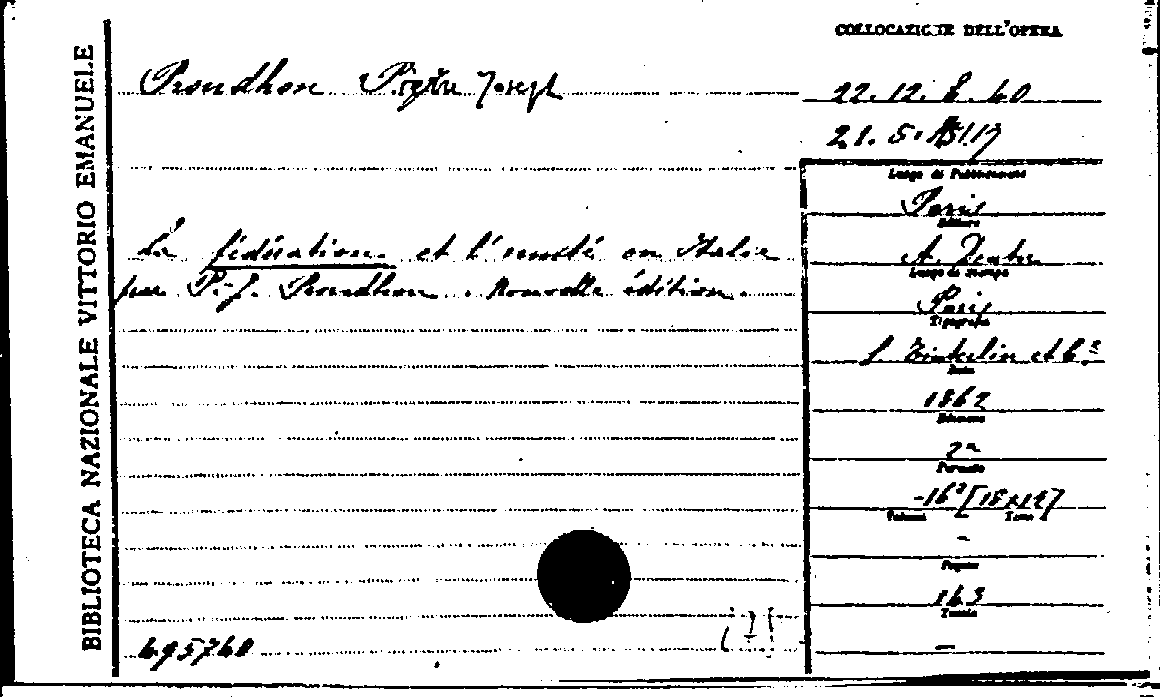 BIBLIOTECA NAZIONALE VITTORIO EMANUELE
COLLOCAZIONE DELL'OPERA
Proudhon Pierre Joseph
22. 12. E. 40
21. 5.
Luogo di Pubblicazione
Paris
Editore
A. Dentu
Luogo di stampa
Paris
Tipografia
Data
1862
Edizione
2ª
Formato
Volumi Tomo
-
Pagine
163
Tavole
-
La fédération et l'unité en Italie
par P.-J. Proudhon. Nouvelle édition.
695760